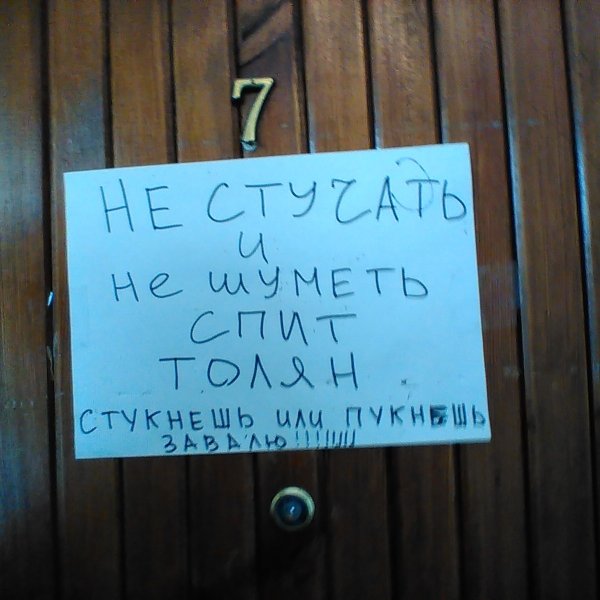 7
НЕ СТУЧАТЬ
И
не шуметь
СПИТ
ТОЛЯН
СТУКНЕШЬ ИЛИ ПУКНЕШЬ
ЗАВАЛЮ!!!!!!!!